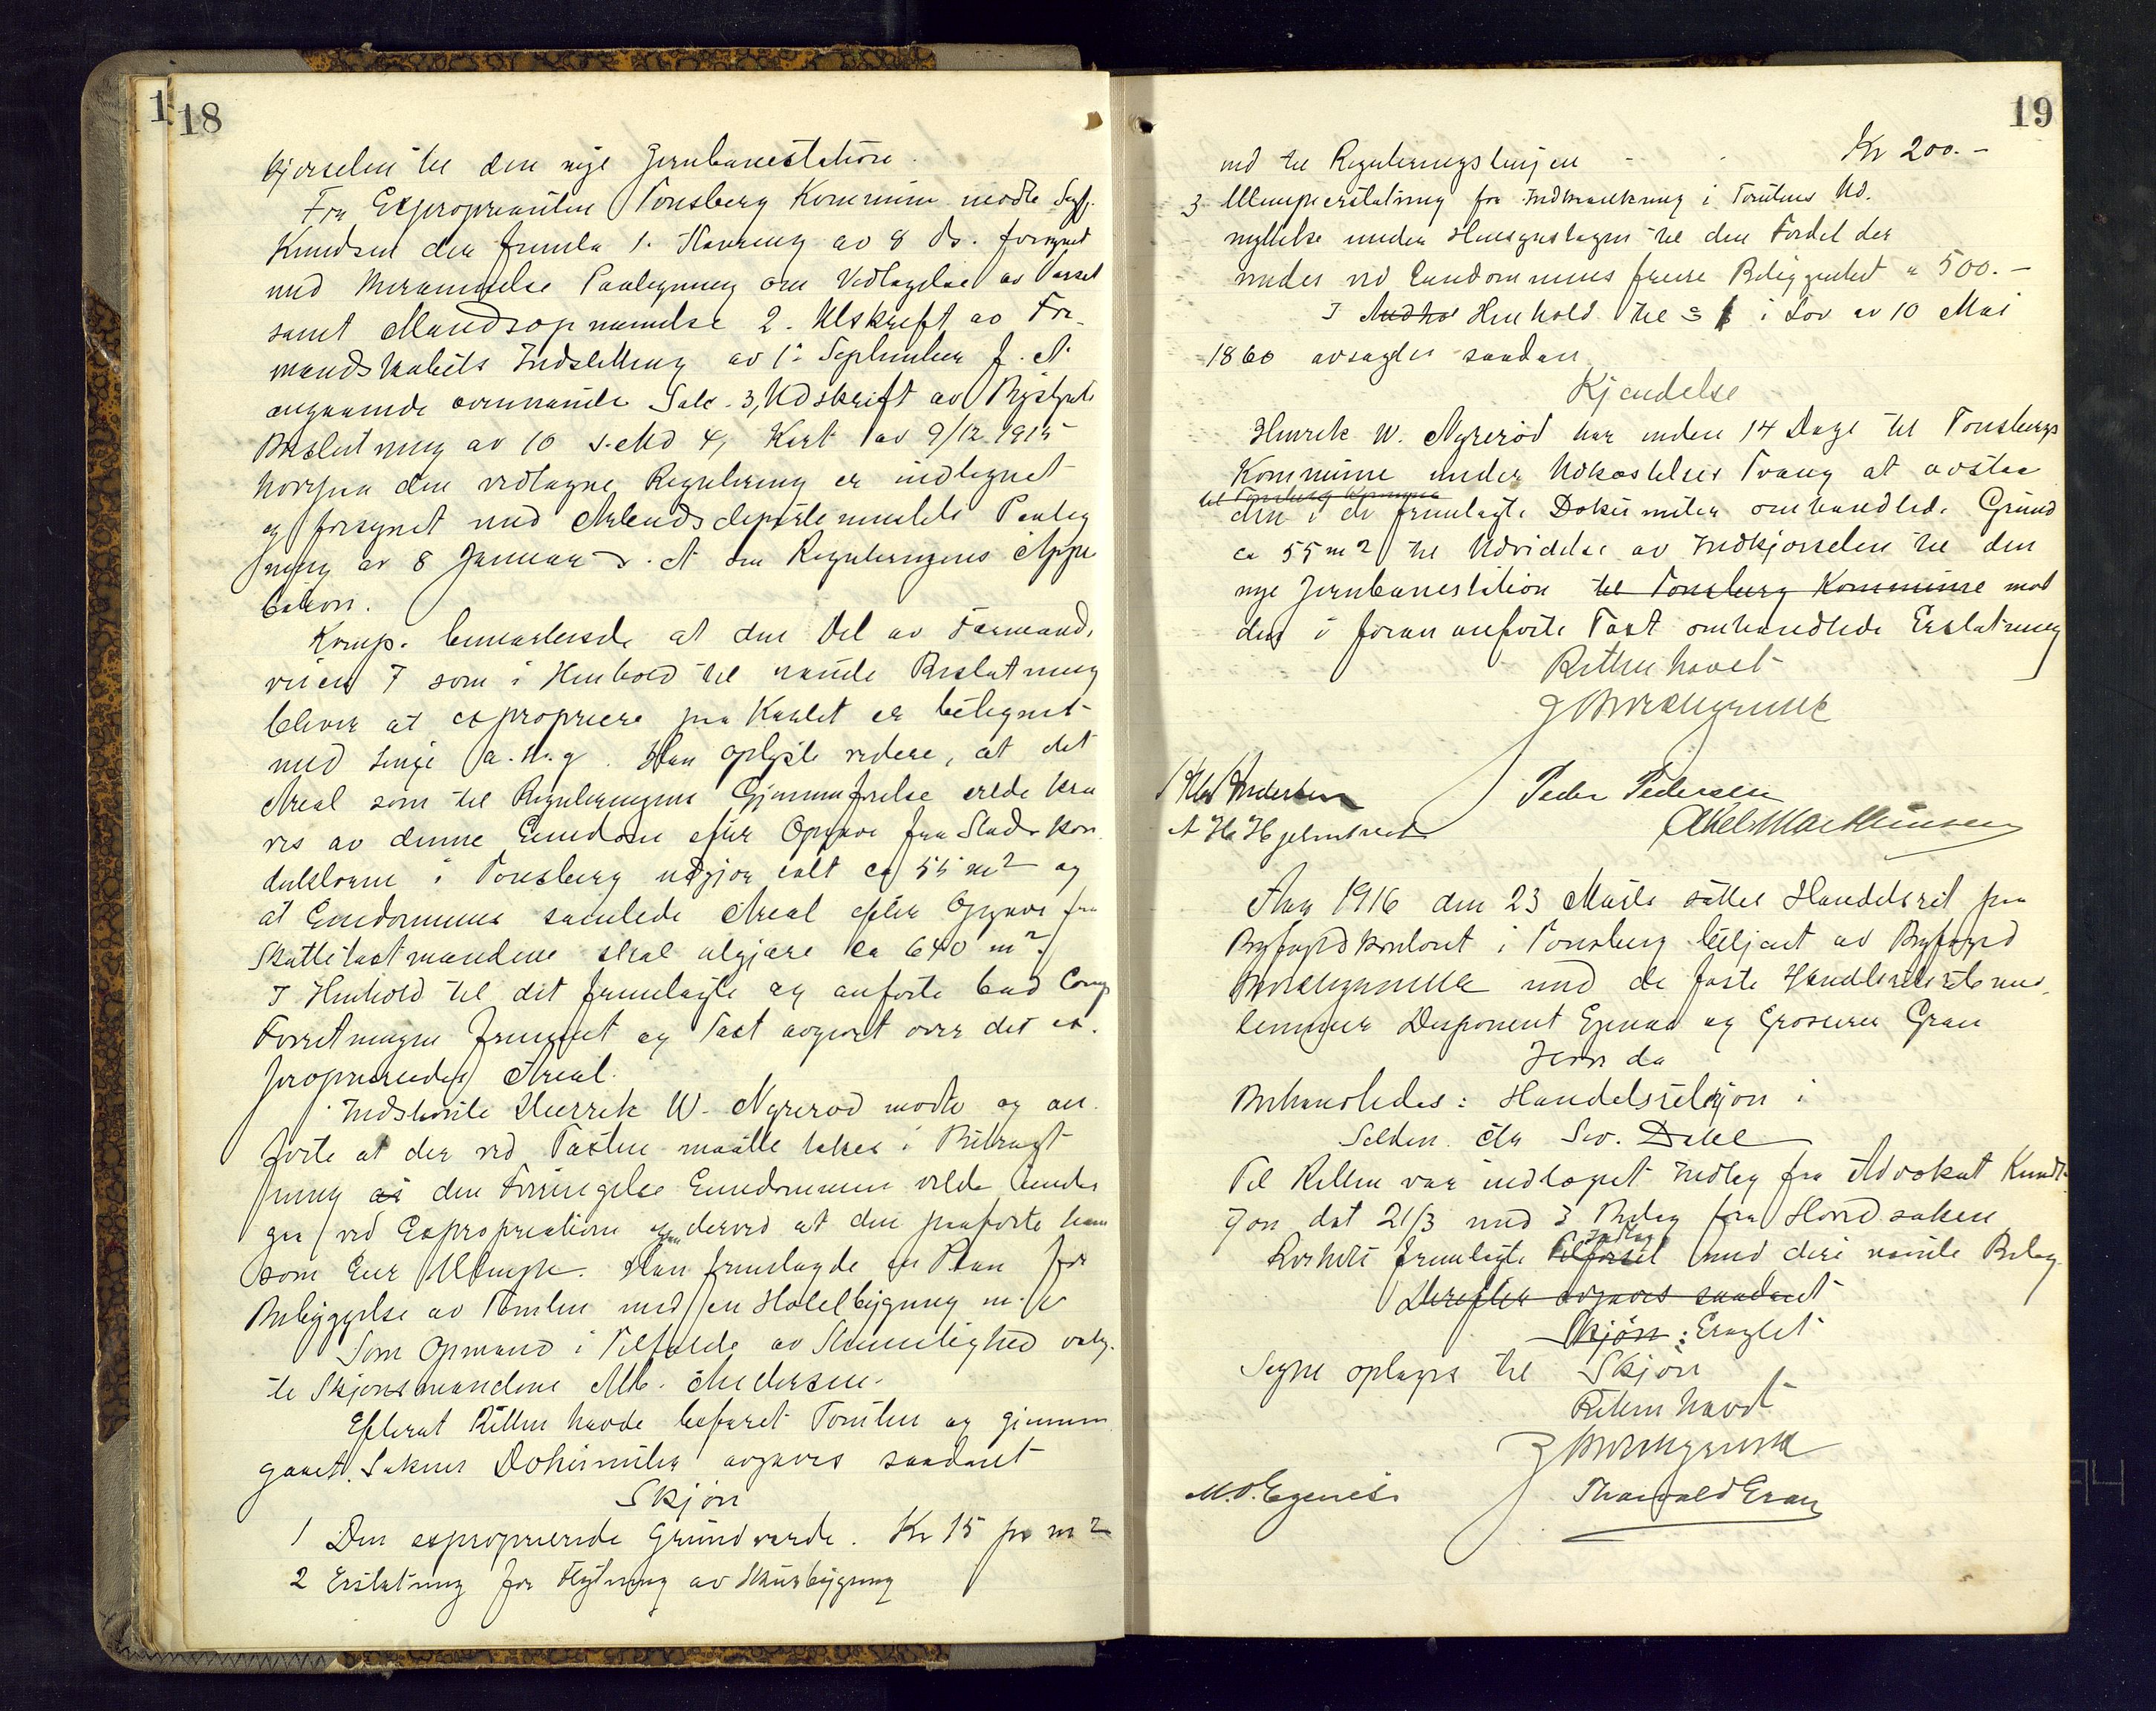 18
kjørselen til den nye Jernbanestation.
For Expropriantene Tønsberg Kommune mødte Sagf.
Knudsen der fremla 1. Stevning av 8 ds. forsynet
med Meramede Paategning om Vedtagelse av Varsel
samt Mandsopnævnelse 2. Utskrift av For-
mandskabets Indstilling av 1. September f. A.
angaaende ovennævnte Sak. 3, Udskrift av Bystyrets
Beslutning av 10 s. Md 4, Kart av 9/12 1915
hvorpaa den vedtagne Regulering er indtegnet
og forsynet med Arbeidsdepartementets Paateg
ning av 8 Januar d. A om Reguleringens Appro
bation.
Komp. bemærkede at den Del av Farmands
veien 7 som i Henhold til nævnte Beslutning
bliver at expropriere paa Kartet er betegnet
med Linje a. h. g. Han oplyste videre, at det
Areal som til Reguleringens Gjennemførelse vilde kræ
ves av denne Eiendom efter Opgave fra Stadskon
duktøren i Tønsberg utgjør ialt ca 55 m2 og
at Eiendommens samlede Areal efter Opgave fra
Skattetaxtmændene skal utgjøre ca 640 m2.
I Henhold til det fremlagte og anførte bad Comp
Forretningen fremmet og Taxt avgivet over det ex-
proprierede Areal.
Indstevnte Henrik W. Nyrerød mødte og an-
førte at der ved Taxten maatte tages i Betragt
ning den Forringelse Eiendommen vilde under
gaa ved Expropriationen derved at den paaførte ham
som Eier Ulempe. Han fremlagde en Plan for
Bebyggelse av Tomten med en Hotelbygning m. v
Som Opmand i Tilfælde av Stemmelighed valg-
te Skjønsmændene Alb. Andersen.
Efterat Retten havde befaret Tomten og gjennem
gaaet Sakens Dokumenter avgaves saadant
Skjøn
1 Den exproprierede Grundværde. Kr 15 pr m2
2 Erstatning for Flytning av Skurbygning
19
ind til Reguleringslinjen - - Kr 200.-
3 Ulempeerstatning for Indskrænkning i Tomtens Ud-
nyttelse under Hensyntagen til den Fordel der
vindes ved Eiendommens friere Beliggenhet " 500.-
I Henhold til § i Lov av 10 Mai
1860 avsagdes saadan
Kjendelse
Henrik W. Nyrerød har inden 14 Dage til Tønsbergs
Kommune under Udkastelses Tvang at avstaa
til Tønsberg Kommune
den i de fremlagte Dokumenter omhandlede Grund
ca 55 m2 til Udvidelse av Indkjørselen til den
nye Jernbanestation til Tønsberg Kommune mot
den i foran anførte Taxt omhandlede Erstatning
Retten hævet
Alb Andersen Peder Pedersen
Abel Mathiesen
Aar 1916 den 23 Marts sattes Handelsret paa
Byfogdkontoret i Tønsberg betjent av Byfogd
med de faste Handelsretsmed-
lemmer Disponent Egenæs og Grosserer Gran
Hvor da
Behandledes: Handelsretskjøn i
Til Retten var indlagt Indlæg fra Advokat Knudt-
zon dat 21/3 med 3 Bilag fra Hovedsaken
Indlæg
Rettens fremlagte med deri nævnte Bilag
Derefter avgaves saadant
Skjøn:
Sagen optages til Skjøn
Retten hævet
M. O. Egenæs Thorvald Gran